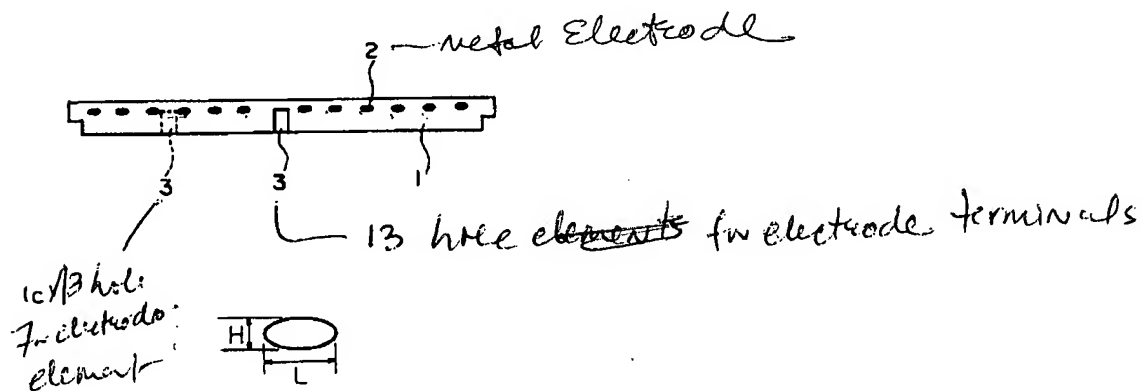 2 — metal Electrode
3 3 1
13 hole elements for electrode terminals
hole
electrode
element
H
L